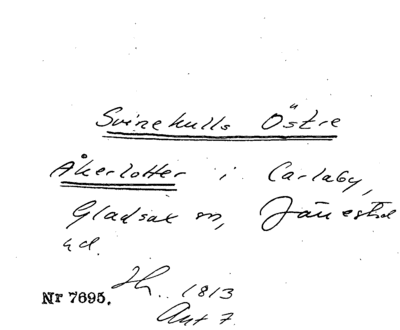 Svinekulls Östre
Åkerlotter i Carlaby,
Gladsax sn, Järrestad
hd.
Ih. 1813
Nr 7695.
Akt 7.